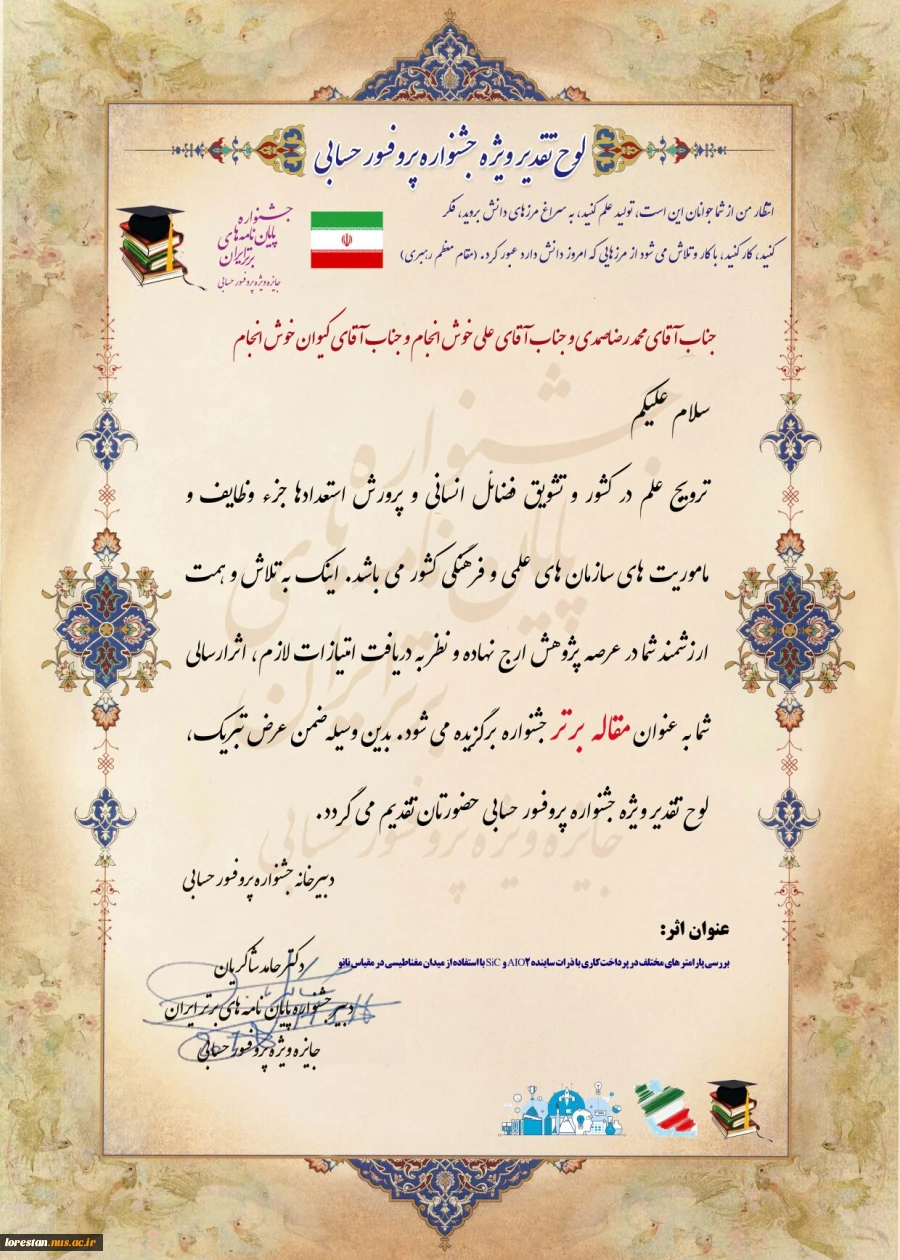 لوح تقدیر ویژه جشنواره پروفسور حسابی
انتظار من از شما جوانان این است، تولید علم کنید، به سراغ مرزهای دانش بروید، فکر
کنید، کار کنید، با کار و تلاش می شود از مرزهایی که امروز دانش دارد عبور کرد. (مقام معظم رهبری)
جشنواره
پایان نامه های
برتر ایران
جایزه ویژه پروفسور حسابی
جناب آقای محمدرضا صمدی و جناب آقای علی خوش انجام و جناب آقای کیوان خوش انجام
سلام علیکم
ترویج علم در کشور و تشویق فضائل انسانی و پرورش استعدادها جزء وظایف و
ماموریت های سازمان های علمی و فرهنگی کشور می باشد. اینک به تلاش و همت
ارزشمند شما در عرصه پژوهش ارج نهاده و نظر به دریافت امتیازات لازم، اثر ارسالی
شما به عنوان مقاله برتر جشنواره برگزیده می شود. بدین وسیله ضمن عرض تبریک،
لوح تقدیر ویژه جشنواره پروفسور حسابی حضورتان تقدیم می گردد.
جشنواره
پایان نامه های
برتر ایران
جایزه ویژه پروفسور حسابی
دبیرخانه جشنواره پروفسور حسابی
عنوان اثر:
بررسی پارامترهای مختلف در پرداخت کاری با ذرات ساینده AlO2 و SiC با استفاده از میدان مغناطیسی در مقیاس نانو
دکتر حامد شاکریان
دبیر جشنواره پایان نامه های برتر ایران
جایزه ویژه پروفسور حسابی
lorestan.nus.ac.ir